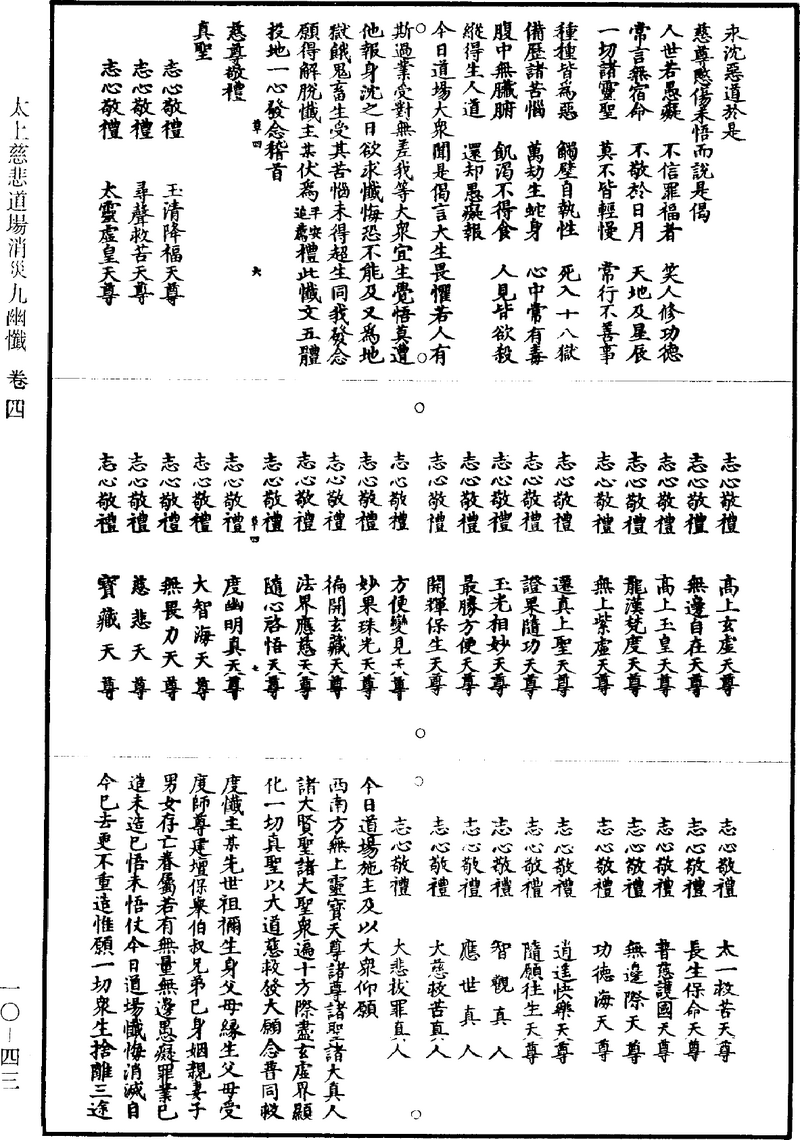 永沈惡道於是
慈尊愍傷未悟而說是偈
人世若愚癡　不信罪福者　笑人修功德
常言無宿命　不敬於日月　天地及星辰
一切諸靈聖　莫不皆輕慢　常行不善事
種種皆為惡　觸壁自執性　死入十八獄
備歷諸苦惱　萬劫生蛇身　心中常有毒
腹中無臟腑　飢渴不得食　人見皆欲殺
縱得生人道　還却愚癡報
今日道場大衆聞是偈言大生畏懼若人有
斯過業受對無差我等大衆宜生覺悟莫遭
他報身沈之日欲求懺悔恐不能及又為地
獄餓鬼畜生受其苦惱未得超生同我發念
願得解脫懺主某伏為平安追薦禮此懺文五體
投地一心發念稽首
草四　六
慈尊敬禮
真聖
志心敬禮　玉清降福天尊
志心敬禮　尋聲救苦天尊
志心敬禮　太靈虛皇天尊
志心敬禮　高上玄虛天尊
志心敬禮　無邊自在天尊
志心敬禮　高上玉皇天尊
志心敬禮　龍漢梵度天尊
志心敬禮　無上紫虛天尊
志心敬禮　還真上聖天尊
志心敬禮　證果隨功天尊
志心敬禮　玉光相妙天尊
志心敬禮　最勝方便天尊
志心敬禮　開輝保生天尊
志心敬禮　方便變見天尊
志心敬禮　妙果珠光天尊
志心敬禮　徧開玄藏天尊
志心敬禮　法界應慈天尊
志心敬禮　隨心啓悟天尊
草四　七
志心敬禮　度幽明真天尊
志心敬禮　大智海天尊
志心敬禮　無畏力天尊
志心敬禮　慈悲天尊
志心敬禮　寶藏天尊
志心敬禮　太一救苦天尊
志心敬禮　長生保命天尊
志心敬禮　普慈護國天尊
志心敬禮　無邊際天尊
志心敬禮　功德海天尊
志心敬禮　逍遙快樂天尊
志心敬禮　隨願往生天尊
志心敬禮　智觀真人
志心敬禮　應世真人
志心敬禮　大慈救苦真人
志心敬禮　大悲拔罪真人
今日道場施主及以大衆仰願
西南方無上靈寶天尊諸尊諸聖諸大真人
諸大賢聖諸大聖衆遍十方際盡玄虛界顯
化一切真聖以大道慈救發大願念普同救
度懺主某先世祖禰生身父母緣生父母受
度師尊建壇保舉伯叔兄弟已身姻親妻子
男女存亡眷屬若有無量無邊愚癡罪業已
造未造已悟未悟仗今日道場懺悔消滅自
今已去更不重造惟願一切衆生捨離三途
太上慈悲道場消災九幽懺　卷四
一〇—四三